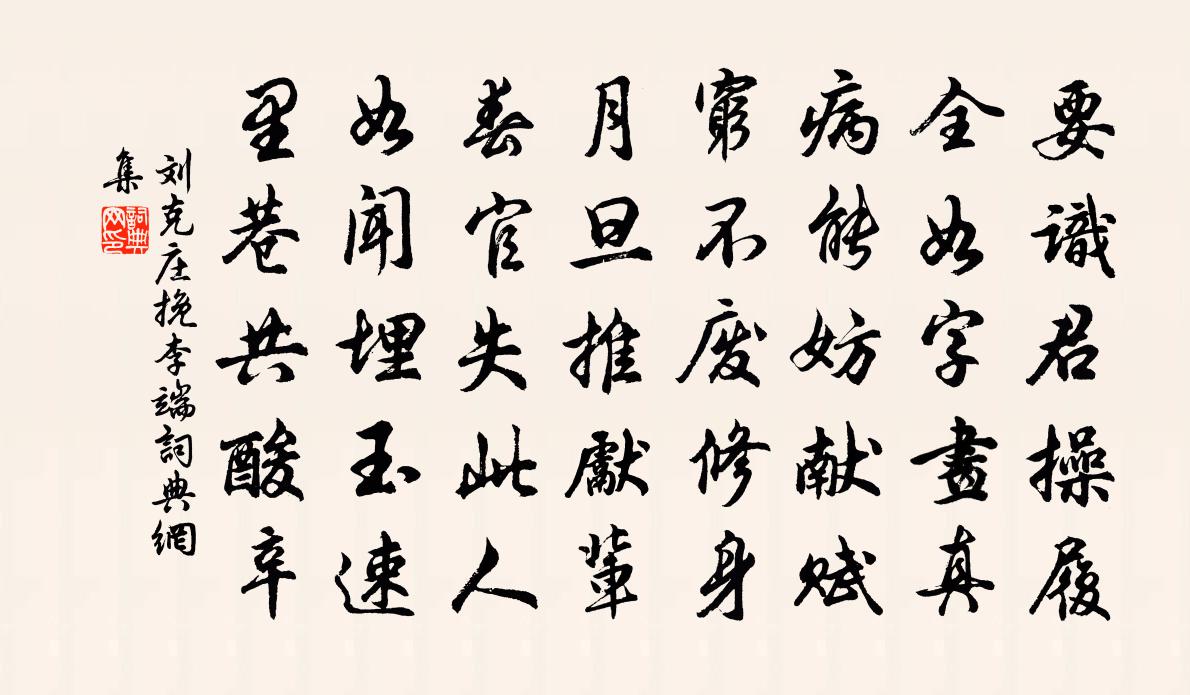 要識君操履
全如字畫真
病能妨献赋
窮不废修身
月旦推獻輩
春官失此人
如聞埋玉速
里巷共酸辛
刘克庄挽李端詞典網
集
詞典
网印